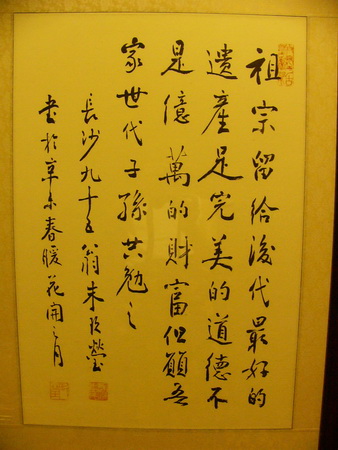 祖宗留給後代最好的
遺產是完美的道德不
是億萬的財富但願吾
家世代子孫共勉之
長沙九十五翁朱玖瑩
書於辛未春暖花開之月